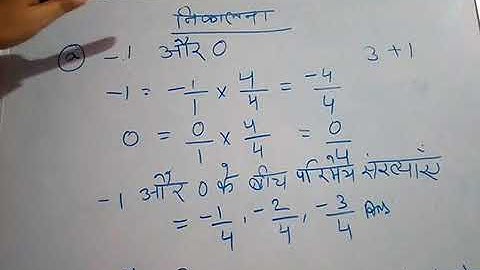 निकालना
(a) -1 और 0 3+1
-1 = -1/1 × 4/4 = -4/4
0 = 0/1 × 4/4 = 0/4
-1 और 0 के बीच परिमेय संख्याएँ
= -1/4, -2/4, -3/4 Ans